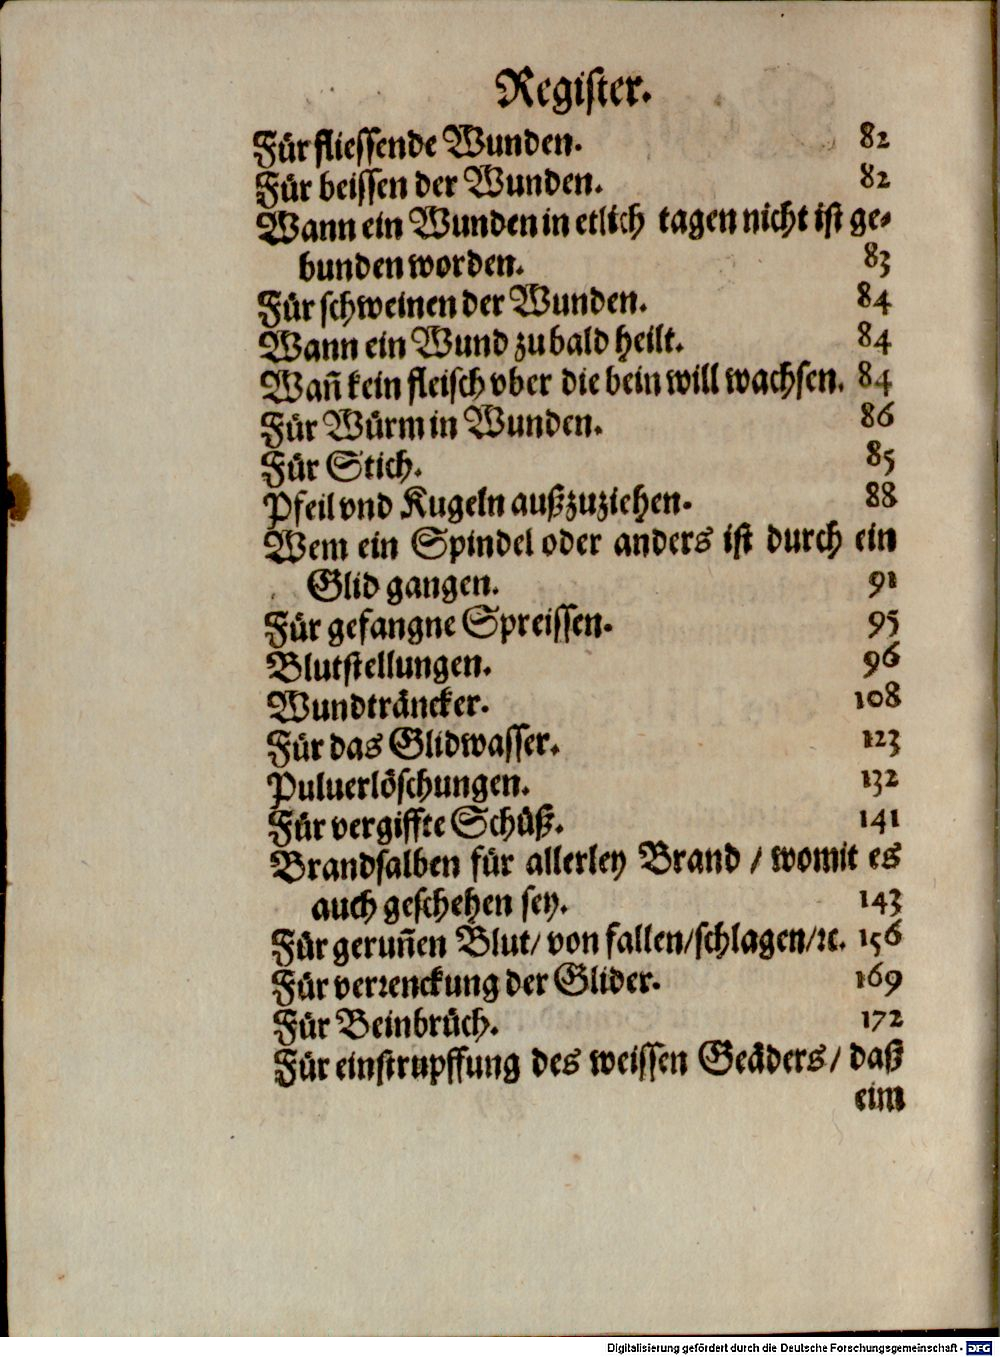 Register.
Für fliessende Wunden. 82
Für beissen der Wunden. 82
Wann ein Wunden in etlich tagen nicht ist ge-
bunden worden. 83
Für schweinen der Wunden. 84
Wann ein Wund zu bald heilt. 84
Wañ kein fleisch vber die bein will wachsen. 84
Für Würm in Wunden. 86
Für Stich. 85
Pfeil vnd Kugeln außzuziehen. 88
Wem ein Spindel oder anders ist durch ein
Glid gangen. 91
Für gefangne Spreissen. 95
Blutstellungen. 96
Wundträncker. 108
Für das Glidwasser. 123
Puluerlöschungen. 132
Für vergiffte Schüß. 141
Brandsalben für allerley Brand / womit es
auch geschehen sey. 143
Für geruñen Blut/ von fallen/schlagen/ꝛc. 156
Für verrenckung der Glider. 169
Für Beinbrüch. 172
Für einstrupffung des weissen Geäders/ daß
eim
Digitalisierung gefördert durch die Deutsche Forschungsgemeinschaft - DFG